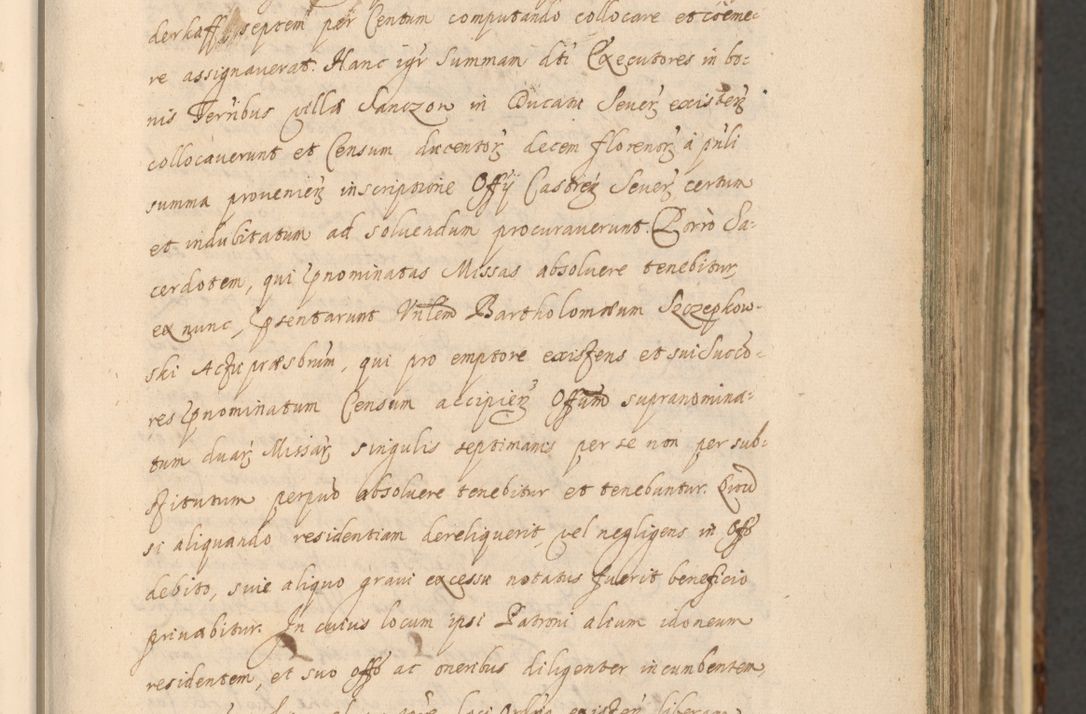 derkaff septem per Centum computando collocare et coeme-
re assignaverat. Hanc igr Summam dti Executores in bo-
nis Terribus villæ Sanczon in Ducatu Severz existenz
collocaverunt et Censum ducentorz decem florenorz à pnli
summa provenienz inscriptione Offÿ Castrenz Severz certum
et indubitatum ad solvendum procuraverunt. Porrò Sa-
cerdotem, qui pnominatas Missas absolvere tenebitur,
ex nunc, psentarunt Vnlem Bartholomæum Szczepkow-
ski Actu præsbrum, qui pro emptore existens et sui Succo-
res pnominatum Censum accipienz Offium supranomina-
tum duarz Missarz singulis septimanis per se non per sub-
stitutum perpuo absolvere tenebitur et tenebuntur. Quod
si aliquando residentiam dereliquerit, vel negligens in Offo
debito, suie aliquo gravi excessu notatus fuerit beneficio
privabitur. In cuius locum ipsi Patroni alium idoneum
residentem, et suo offo ac oneribus diligenter incumbentem,
loci liberam